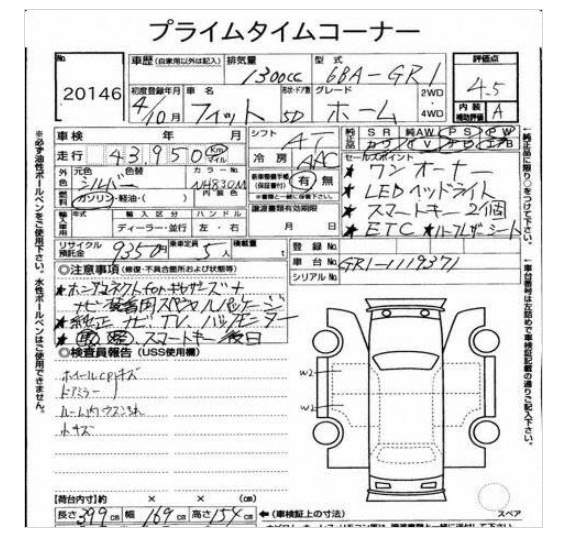 プライムタイムコーナー
No. 20146
車歴 (自家用以外は記入) 排気量 1300cc 型式 6BA-GR1 評価点 4.5
初度登録年月 4/10月 車名 フィット 5D グレード ホーム 2WD 4WD 内装補助評価 A
車検 年 月 シフト AT 純正品 SR 純AW PS PW
走行 43,950 Km マイル 冷房 AAC カワ TV ナビ エアB
外色 元色 シルバー 色替 カラーNo. NH830M 有 無 セールスポイント
燃料 ガソリン・軽油・( ) 内装色
★ワンオーナー
★LEDヘッドライト
★スマートキー2個
★ETC ★ハーフレザーシート
輸入車用 年式 輸入区分 ハンドル 譲渡書類有効期限
ディーラー・並行 左・右 月 日
リサイクル預託金 9350円 乗車定員 5人 積載量 t
登録No.
車台No. GR1-1119371
シリアルNo.
◎注意事項 (修復・不具合箇所および状態等)
★ホンダコネクトforギャザズ+
ナビ装着用スペシャルパッケージ
★純正ナビ、TV、バックモニター
スマートキー後日
◎検査員報告 (USS使用欄)
ホイールCPキズ
ドアミラー
ルーム内ウスヨゴレ
小キズ
W2
W2
【荷台内寸】約 × × (cm)
長さ 399 cm 幅 169 cm 高さ 154 cm ←(車検証上の寸法)
スペア
※必ず油性ボールペンをご使用下さい。水性ボールペンはご使用できません。
←純正品に限り○をつけて下さい。
←車台番号は左詰めで車検証記載の通りご記入下さい。